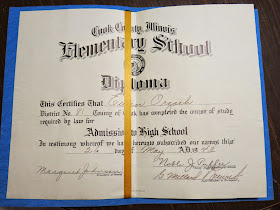 Cook County, Illinois
Elementary School
Diploma
This Certifies That
District No. 81 County of Cook has completed the course of study
required by law for
Admission to High School
In testimony whereof we have hereunto subscribed our names this
26 day of May A.D. 19
Noble J. Puffer